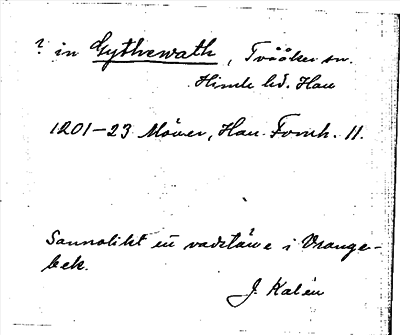 ? in Gythewath, Tvååker sn.
Himle hd. Hall
1201-23 Möller, Hall. Fornh. 11.
Sannolikt en vadställe i Vrange-
bek.
J. Kalén